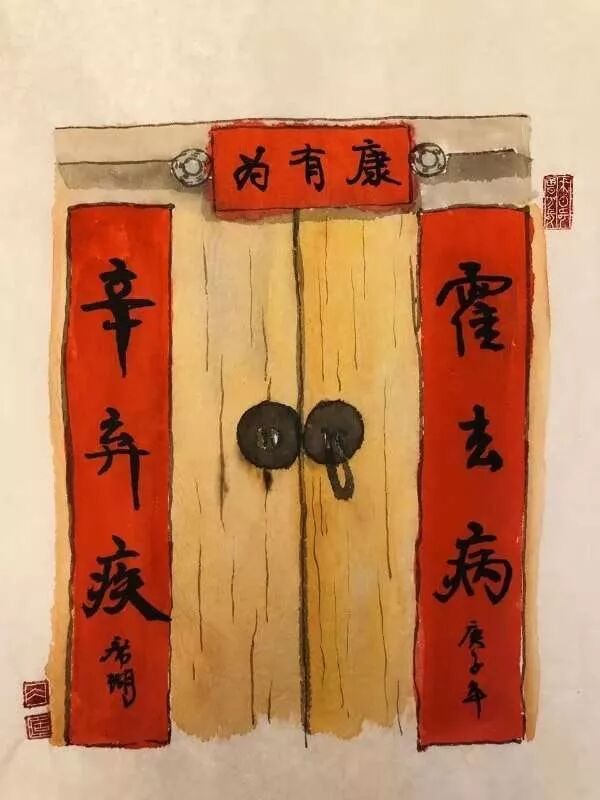 康有为
霍去病
庚子年
辛弃疾